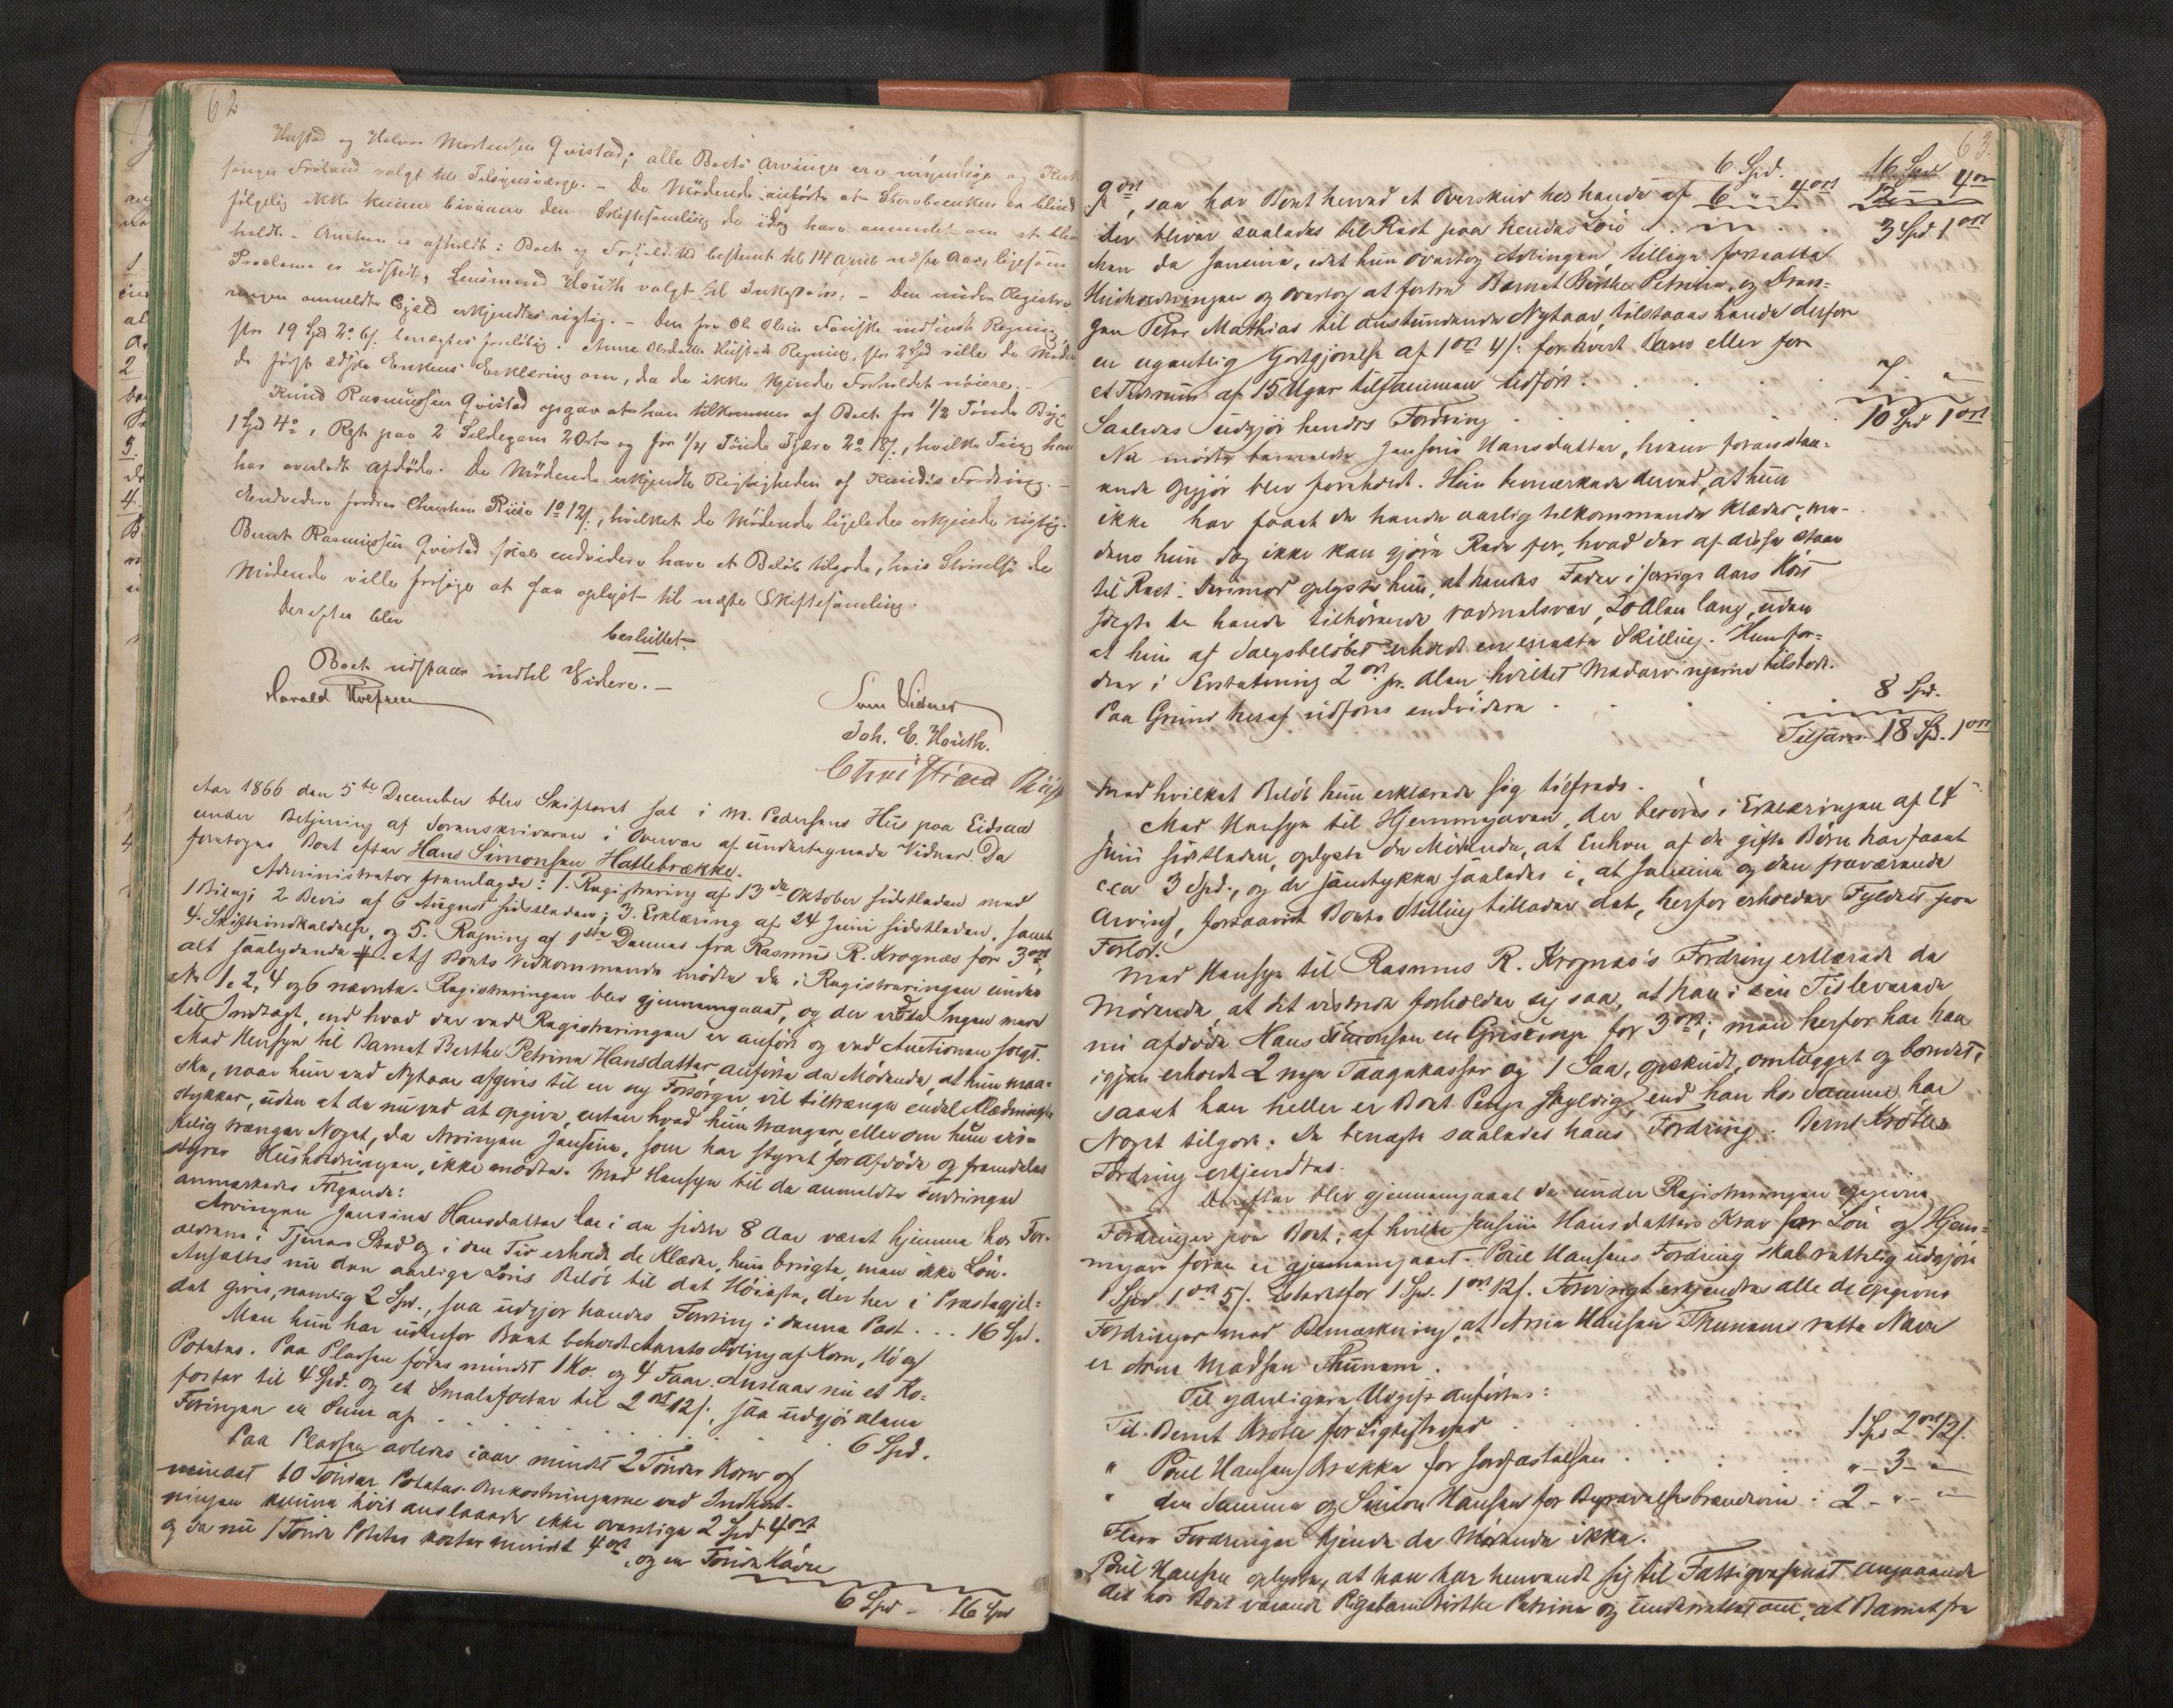 62
Hustad og Halvor Mortensen Qvistad; alle Boets Arvinger ere umyndige og Kirke
sanger Fröland valgt til Tilsynsværge. – De Mödende anförte at Skrobenken er blind
fölgelig ikke kunne bivaane den Skiftesamling de idag have anmeldt om at blive
holdt. – Auction er afholdt: Boet og Forfaldstid bestemt til 14 April næste Aar, ligesom
Proclama er udstedt, Lensmand Houth valgt til Inkassator. – Den under Registre-
ringen anmeldte Gjæld erkjendtes rigtig. – Den fra Ole Olsen indsendte Regning
stor 19 Spd 2o 6s. benægtes foreløbig. Anne Olsdatter Hustads Regning, stor 2 Spd ville de Mödende
de först ædske Enkens Erklæring om, da de ikke kjende Forholdet nöiere. –
Knud Rasmussen Qvistad opgav at han tilkommer af Boet for 1/2 Tönde Byg
1 Spd 4o, Rest paa 2 Sildegarn 2 Ort og for 1/4 Tönde Tjære 2o 18s., hvilke Ting han
har overladt afdöde. De Mödende erkjendte Rigtigheden af Knuds Fordring. –
Endvidere fordrer Christen Riise 1o 12s., hvilket de Mödende ligeledes erkjende rigtig.
Bernt Rasmussen Qvistad skal endvidere have et Belöb tilgode, hvis Störrelse de
Mödende ville forsöge at faa oplyst til næste Skiftesamling.
Derefter blev
besluttet:
Boet udstaar indtil Videre. –
Harald
Som Vidner
Joh. E. Houth.
Christian Riise
Aar 1866 den 5te December blev Skifteret sat i M. Pedersens Hus paa Eidsaa
under Betjening af Sorenskriveren i Overvær af undertegnede Vidner. Da
foretoges Boet efter Hans Simonsen Hattebrække.
Administrator fremlagde: 1. Registrering af 13de Oktober sidstleden med
1 Bilag; 2 Bevis af 6 August sidstleden; 3. Erklæring af 24 Juni sidstleden, samt
4. Skifteindkaldelse, og 5. Regning af 1ste Dennes fra Rasmus R. Krognæs for 3 ort,
alt saalydende #. Af Boets Vedkommende mödte de i Registreringen under
No 1, 2, 4 og 6 nævnte. Registreringen blev gjennemgaaet, og der vidste Ingen mere
til Indtægt, end hvad der ved Registreringen er anfört og ved Auctionen solgt.
Med Hensyn til Barnet Berthe Petrina Hansdatter, anförte de Mödende, at hun maa-
ske, naar hun ved Nytaar afgives til en ny Forsörger, vil tiltrænge endel Klædnings-
stykker, uden at de nu ved at opgive, enten hvad hun trænger, eller om hun vir-
kelig trænger Noget, da Arvingen Jensine, som har styret for Afdöde og fremdeles
styrer Husholdningen, ikke mödte. Med Hensyn til de anmeldte Fordringer
anmærkedes Fölgende:
Arvingen Jensine Hansdatter har i de sidste 8 Aar været hjemme hos For-
ældrene i Tjeners Sted og i den Tid erholdt de Klæder, hun brugte, men ikke Lön.
Ansættes nu den aarlige Löns Belöb til det Höieste, der her i Præstegjel-
det gives, nemlig 2 Spd., saa udgjor hendes Fordring i denne Post . . . 16 Spd.
Men hun har udenfor Boet beholdt Aarets Avling af Korn, Hö og
Potetes. Paa Pladsen födes mindst 1 Ko. og 4 Faar. Anslaaes nu et Ko-
foster til 4 Spd. og et Smalefoster til 2 ort 12 s., saa udgjör alene
Foringen en Sum af . . . . . . . . . 6 Spd.
Paa Pladsen avledes iaar mindst 2 Tönder Korn og
mindst 10 Tönder Potetes. Omkostningerne ved Indhöst-
ningen kunne höit anslaaede ikke overstige 2 Spd 4 ort
og da nu 1 Tönde Potetes koster mindst 4 ort, og en Tönde Havre
6 Spd – 16 Spd
63.
6 Spd. 16 Spd
9 ort, saa har Boet herved et Overskud hos hende af 6 " – 4 ort 12 – 4 ort
der bliver saaledes til Rest paa hendes Lön . . . . . 3 Spd 1 ort
Men da Jensine, idet hun overtog Avlingen tillige fortsatte
Husholdningen og overtog at fostre Barnet Berthe Petrina, og Dren-
gen Peter Mathias til anstundende Nytaar, tilstaaes hende derfor
en ugentlig Godtgjörelse af 1 ort 4 s. for hvert Barn eller for
et Tidsrum af 15 Uger tilsammen udfört . . . . 7 . "
Saaledes udgjör hendes Fordring . . . . 10 Spd 1 ort
Nu mödte bemeldte Jensine Hansdatter, hvem foranstaa-
ende Opgjör blev foreholdt. Hun bemærkede derved, at hun
ikke har faaet de hende aarlig tilkommende Klæder, me-
dens hun dog ikke kan gjöre Rede for, hvad der af disse staar
til Rest. Derimod oplyste hun, at hendes Fader i forrige Aars Höst
solgte de hende tilhörende Vadmelsvær, 20 Alen lang, uden
at hun af Salgsbelöbet erholdt en eneste Skilling. Hun for-
drer i Erstatning 2 ort pr. Alen, hvilket Medarvingerne tilstode.
Paa Grund heraf udföres endvidere . . . . 8 Spd.
Tilsam. 18 Spd. 1 ort
med hvilket Belöb hun erklærede sig tilfreds.
Med Hensyn til Hjemmegaven, der beröres i Erklæringen af 24
Juni sidstleden, oplyste de Mödende, at Enhver af de gifte Börn har faaet
cca 3 Spd., og de samtykke saaledes i, at Jensine og den fraværende
Arving, forsaavidt Boets Stilling tillader det, herfor erholder Fyldest som
Forlod.
Med Hensyn til Rasmus R. Krognæs's Fordring erklærede de
Mödende, at det vistnok forholder sig saa, at han i sin Tid leverede
nu afdöde Hans Simonsen en Gris for 3 ort; men herfor har han
igjen erholdt 2 nye Taagekasser og 1 Saa, opskudt, omlagget og bondet,
saaat han heller er Boet Penge skyldig, end han hos Samme har
Noget tilgode. De benægte saaledes hans Fordring. Bernt Krötes
Fordring erkjendtes.
Derefter blev gjennemgaaet de under Registreringen opgivne
Fordringer paa Boet, af hvilke Jensine Hansdatters Krav for Lön og Hjem-
megave foran er gjennemgaaet. Poul Hansens Fordring skal rettelig udgjöre
1 Spd 1 ort 5 s. istedetfor 1 Spd. 1 ort 12 s. Forövrigt erkjendtes alle de opgivne
Fordringer med Bemærkning, at Arne Hansen Thunems rette Navn
er Arne Madsen Thunem.
Til yderligere Udgift anförtes:
Til Bernt Krote for Ligkiste . . 1 Spd 2 ort 12 s.
" Poul Hansen Brække for Jordfæstelsen . . . " – 3 – "
" den Samme og Simon Hansen for Begravelsesbrændeviin : 2 – " – "
Flere Fordringer kjende de Mödende ikke.
Poul Hansen oplyste, at han har henvendt sig til Fattigvæsenet angaaende
det hos Boet værende Pigebarn Berthe Petrina og underrettet om, at Barnet fra